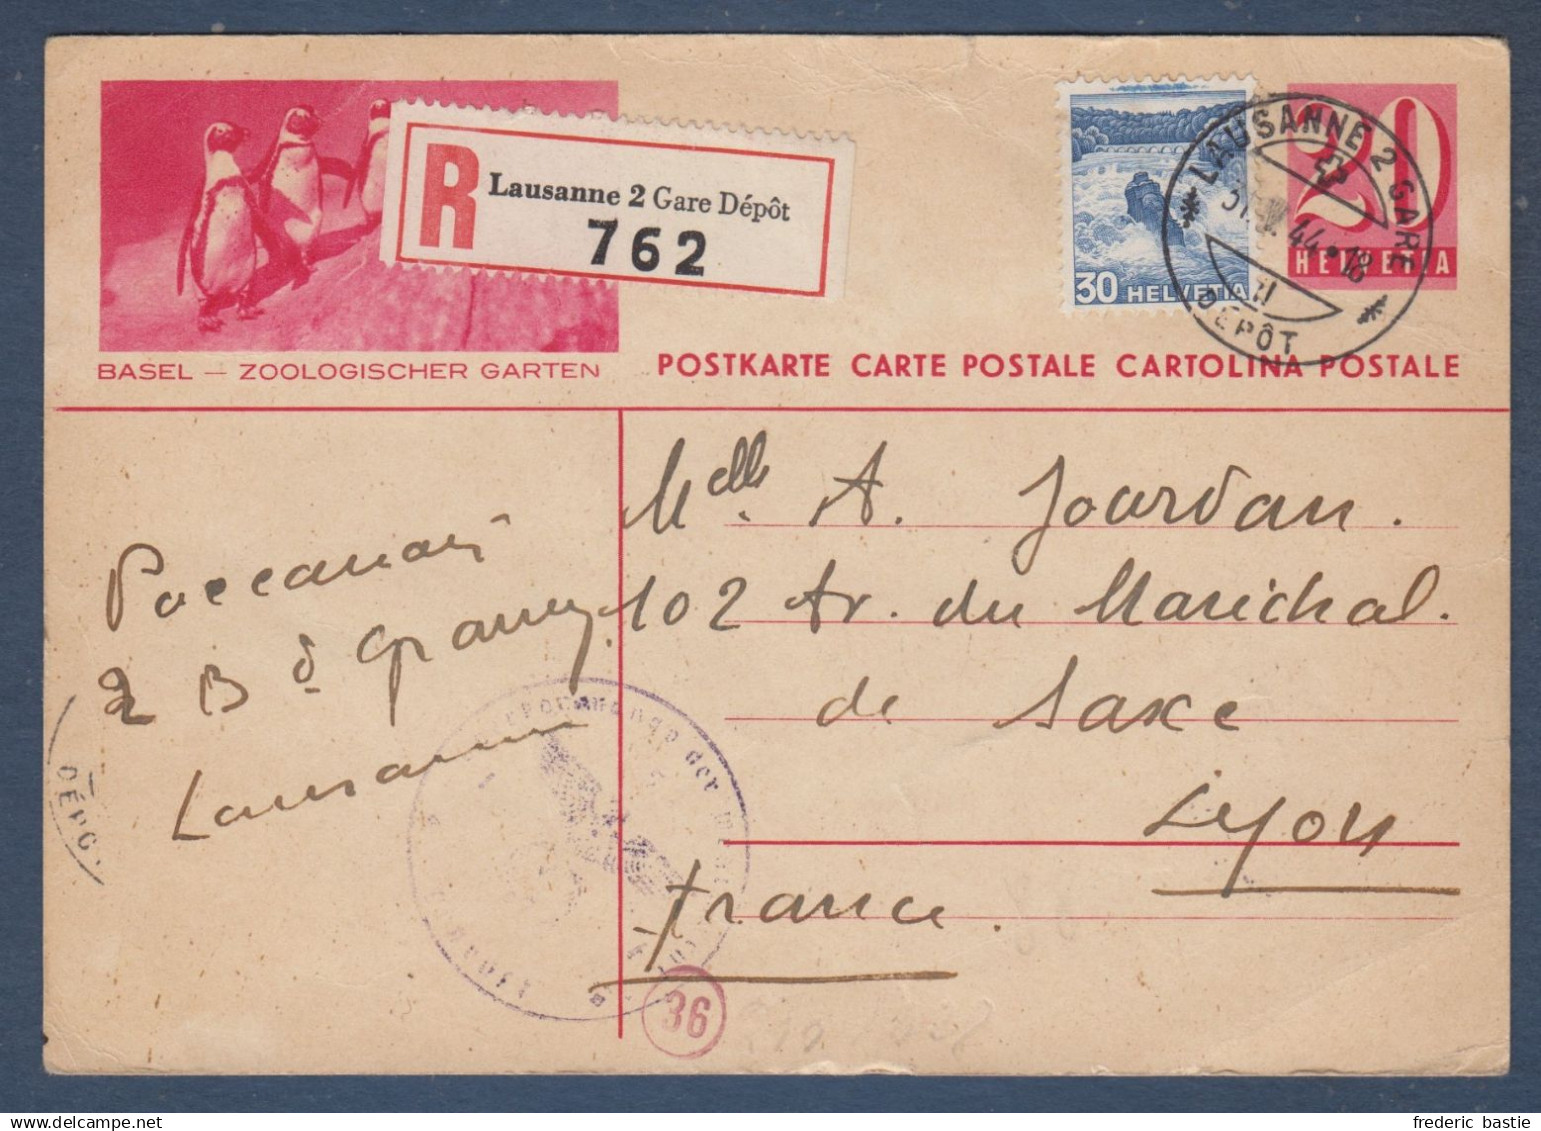 R
Lausanne 2 Gare Dépôt
762
30 HELVETIA
20
HELVETIA
LAUSANNE 2 GARE
44 • 18
DÉPÔT
BASEL — ZOOLOGISCHER GARTEN
POSTKARTE CARTE POSTALE CARTOLINA POSTALE
Melle A. Jourdan.
102 Av. du Maréchal.
de Saxe
Lyon
France.
2 Bd Grancy.
Lausanne
DÉPÔ
der
geprüft
36
frederic bastie